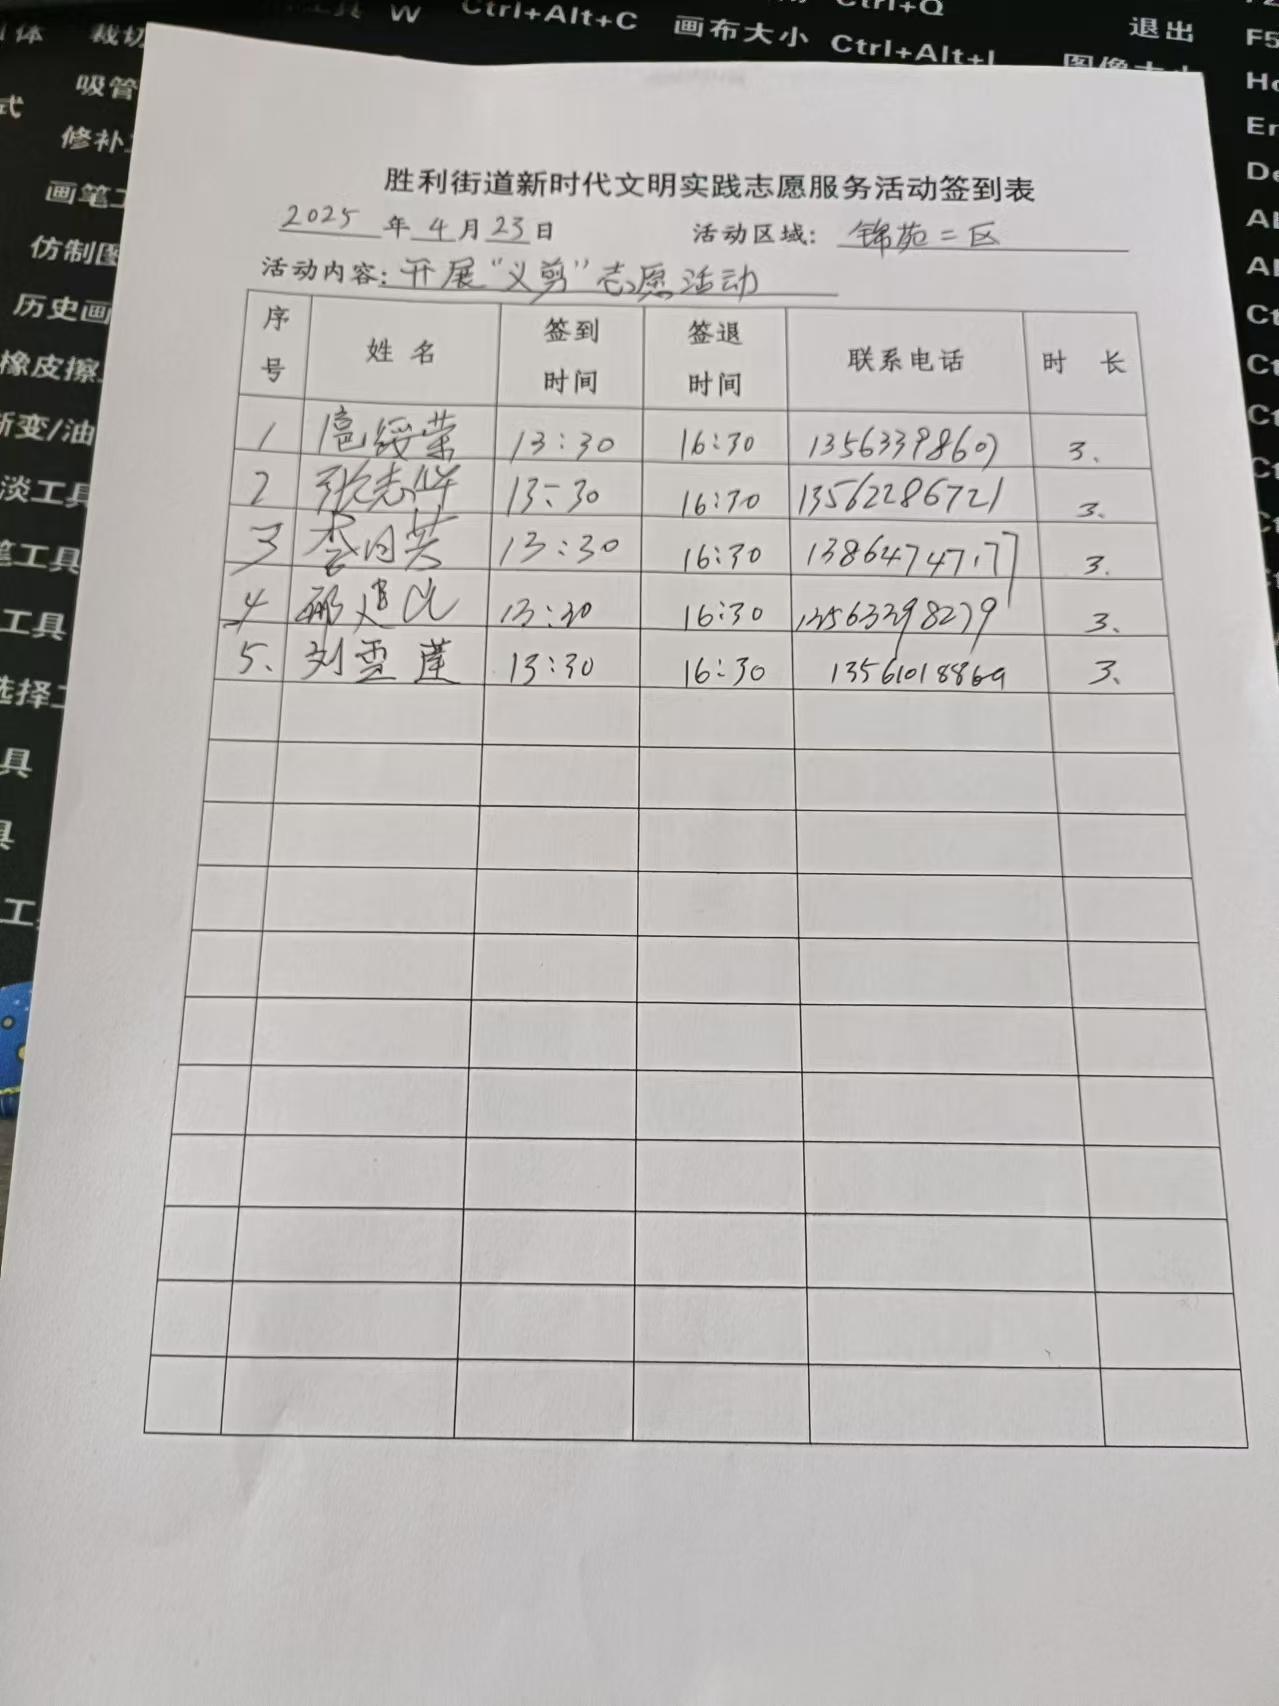 裁切
W
Ctrl+Alt+C
画布大小
Ctrl+Q
Ctrl+Alt+I
退出
图像大小
F5
吸管
式
修补
画笔工
仿制图
历史画
橡皮擦
渐变/油
淡工具
笔工具
工具
选择工
具
工
胜利街道新时代文明实践志愿服务活动签到表
2025年4月23日 活动区域: 锦苑二区
活动内容: 开展“义剪”志愿活动
序号 姓名 签到时间 签退时间 联系电话 时长
1 扈绥荣 13:30 16:30 13563398607 3、
2 张志华 13:30 16:30 13562286721 3、
3 李日芙 13:30 16:30 13864747177 3.
4 邢建 13:30 16:30 13563398279 3、
5、 刘雲莲 13:30 16:30 13561018869 3、